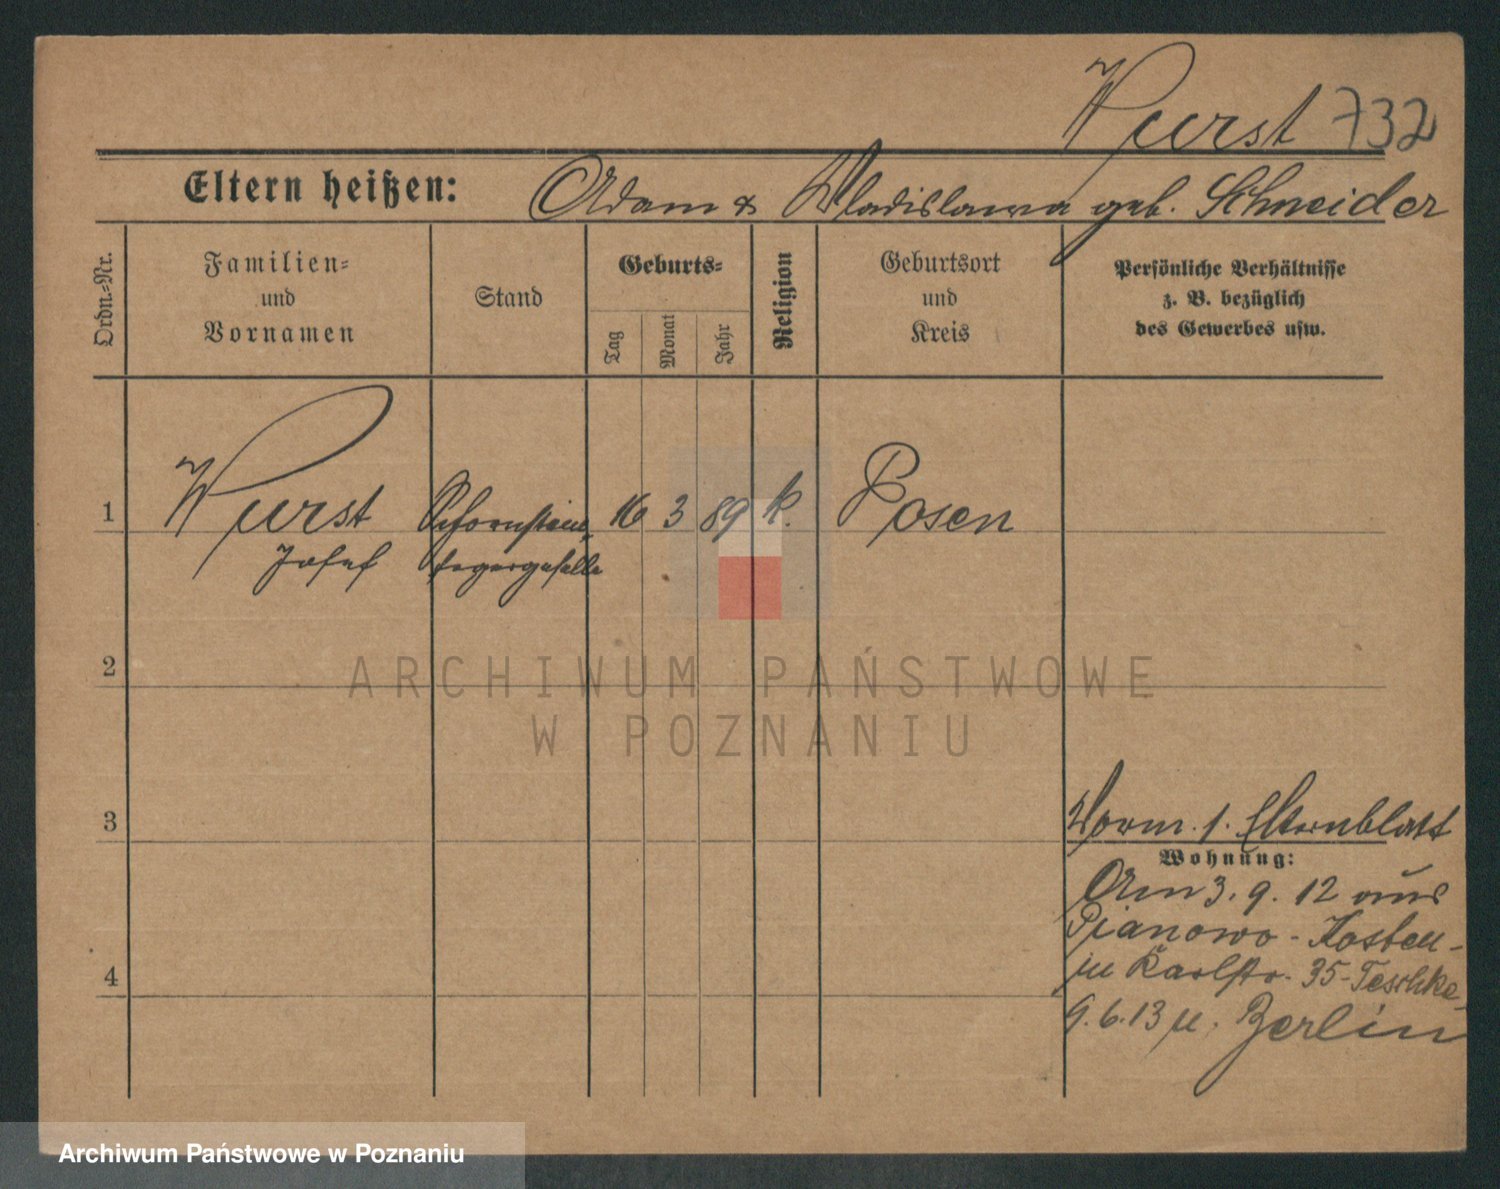 Wurst 732
Eltern heißen: Adam & Wladislawa geb. Schneider
Ordn.-Nr.
Familien-
und
Vornamen
Stand
Geburts-
Tag
Monat
Jahr
Religion
Geburtsort
und
Kreis
Persönliche Verhältnisse
z. B. bezüglich
des Gewerbes usw.
1 Wurst Schornstein- 16 3 89 k. Posen
Josef fegergeselle
2
ARCHIWUM PAŃSTWOWE
W POZNANIU
3
Vorm. s. Elternblatt
Wohnung:
Am 3. 9. 12 aus
Pianowo - Kosten -
in Karlstr. 35 - Teschke
4
9. 6. 13 n. Berlin
Archiwum Państwowe w Poznaniu